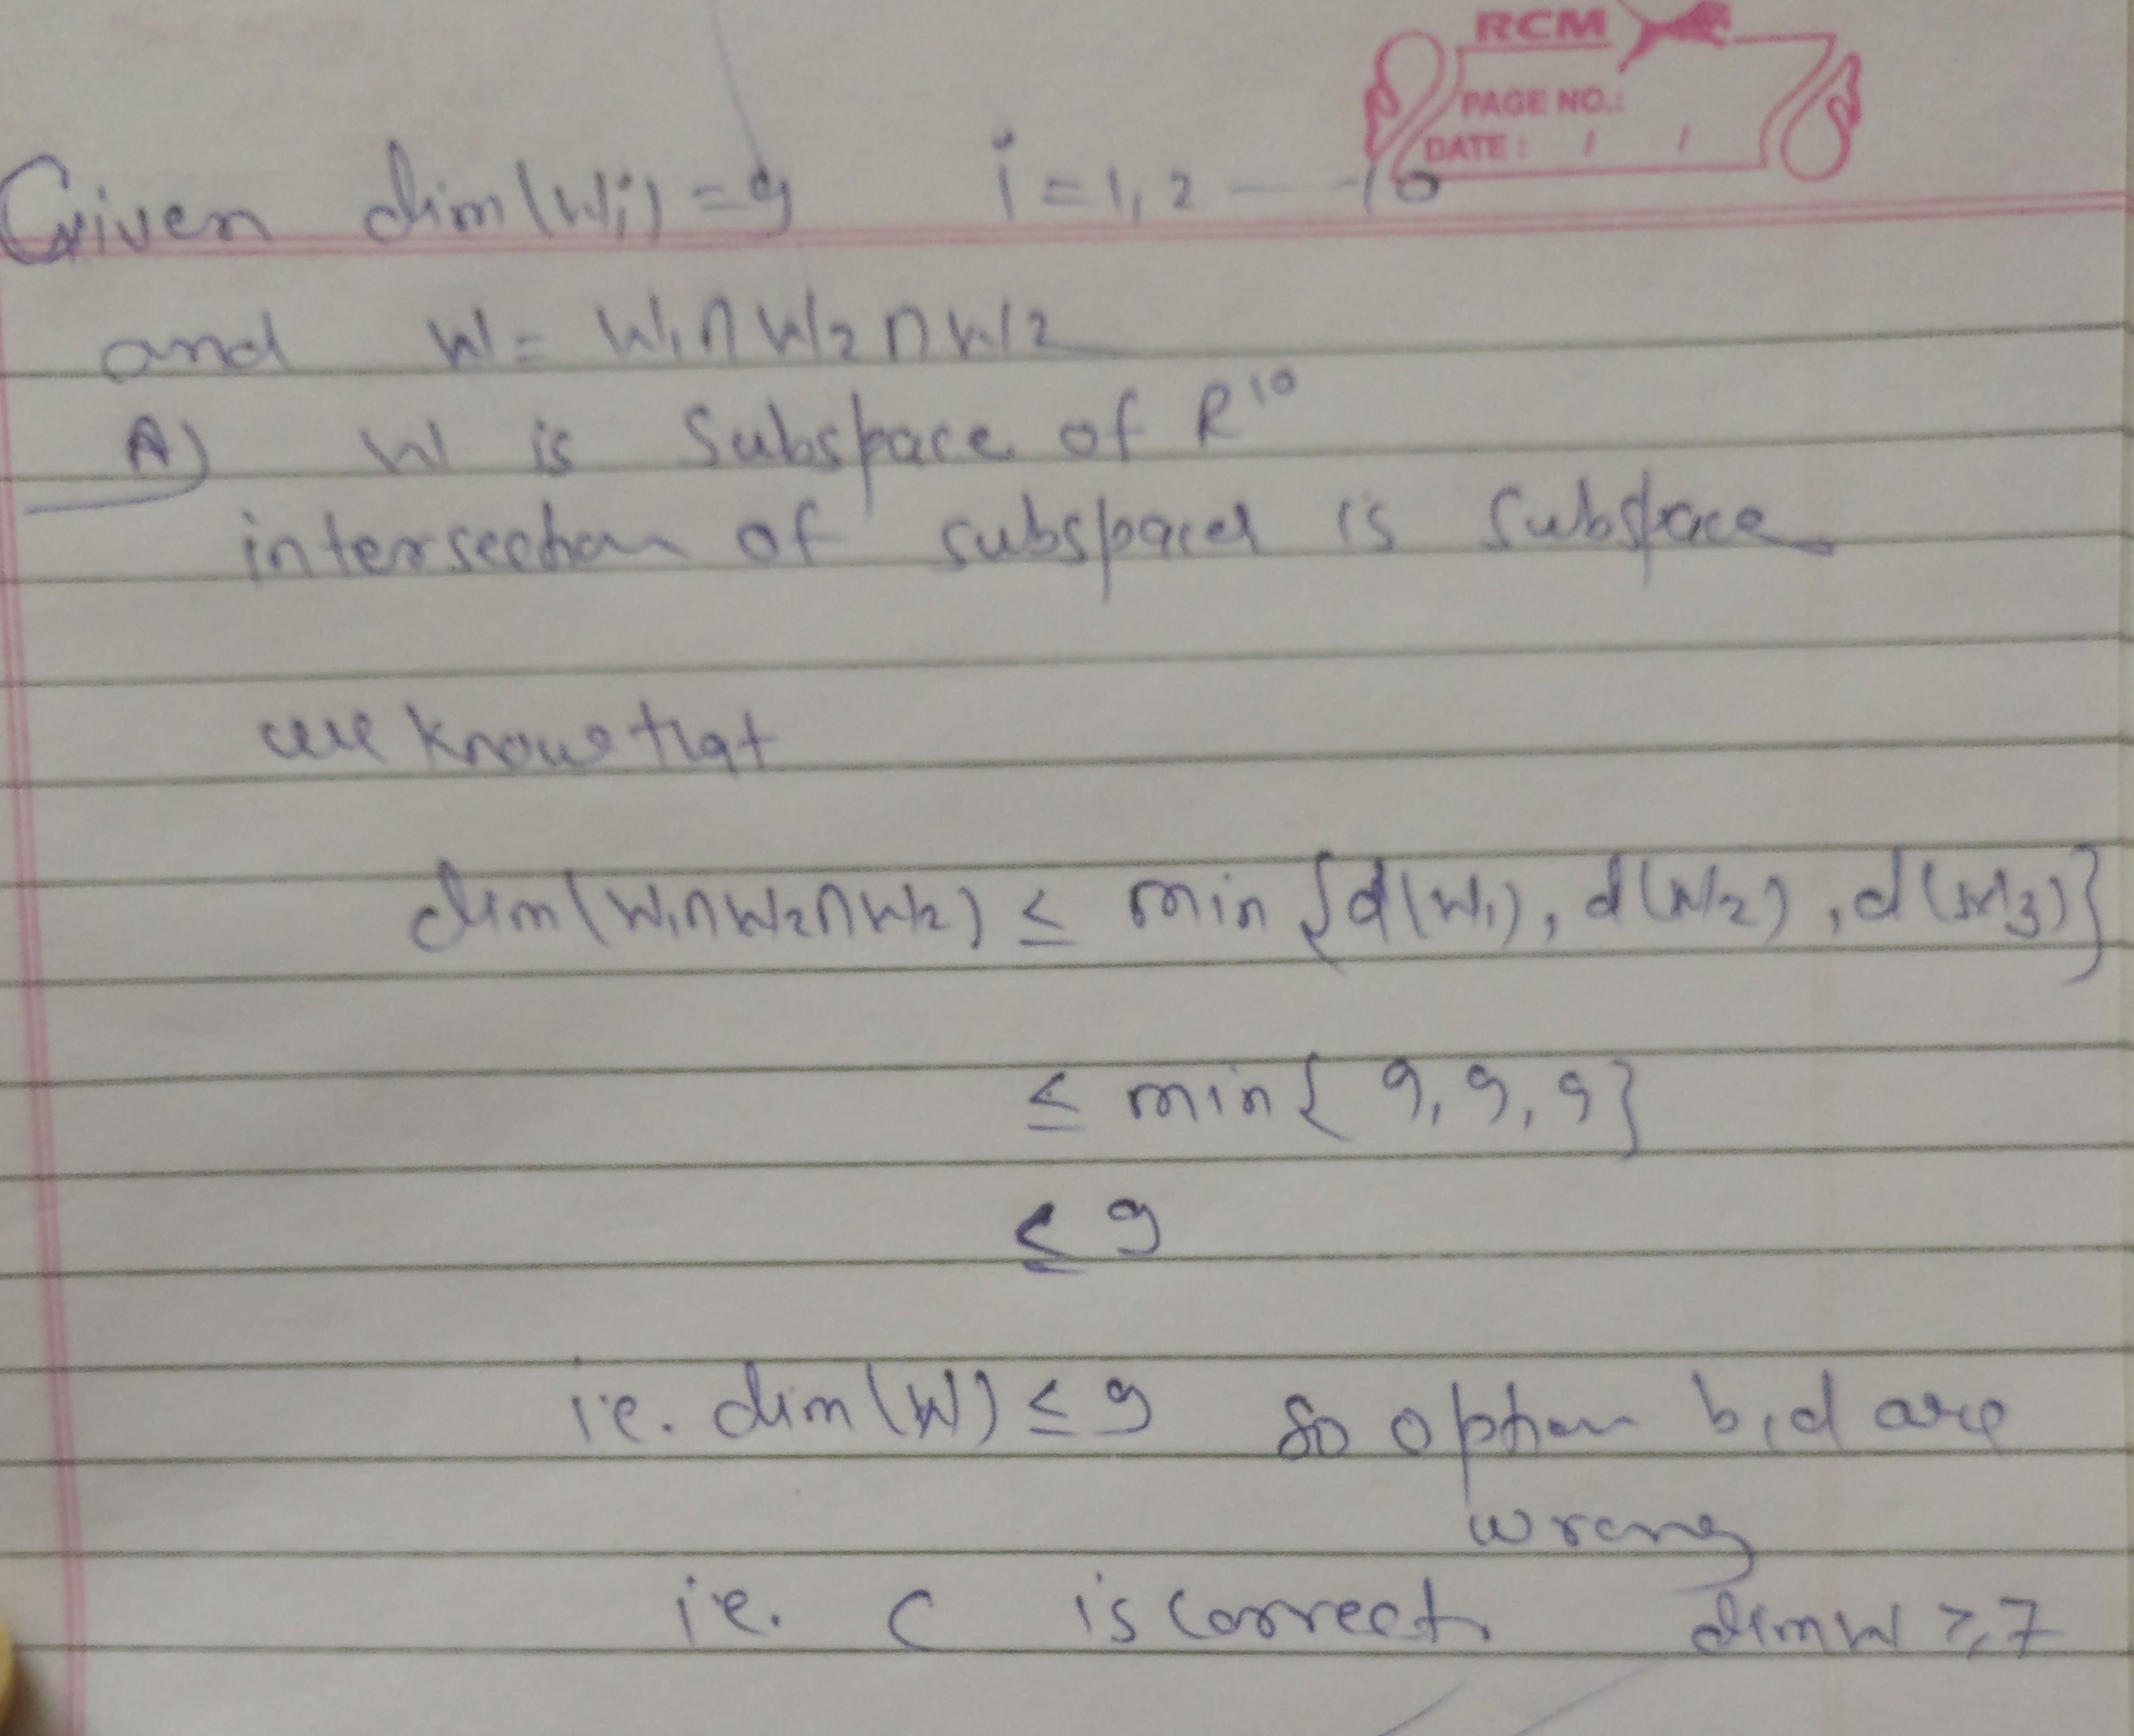 RCM
PAGE NO.:
DATE: / /
Given dim(Wi) = 9 i = 1, 2 — 10
and W = W1 ∩ W2 ∩ W2
A) W is Subspace of R^10
intersection of subspaces is Subspace
we know that
dim(W1∩W2∩W2) ≤ min {d(W1), d(W2), d(W3)}
≤ min{ 9, 9, 9}
≤ 9
i.e. dim(W) ≤ 9 So option b, d are
wrong
i.e. C is correct. dim W ≥ 7